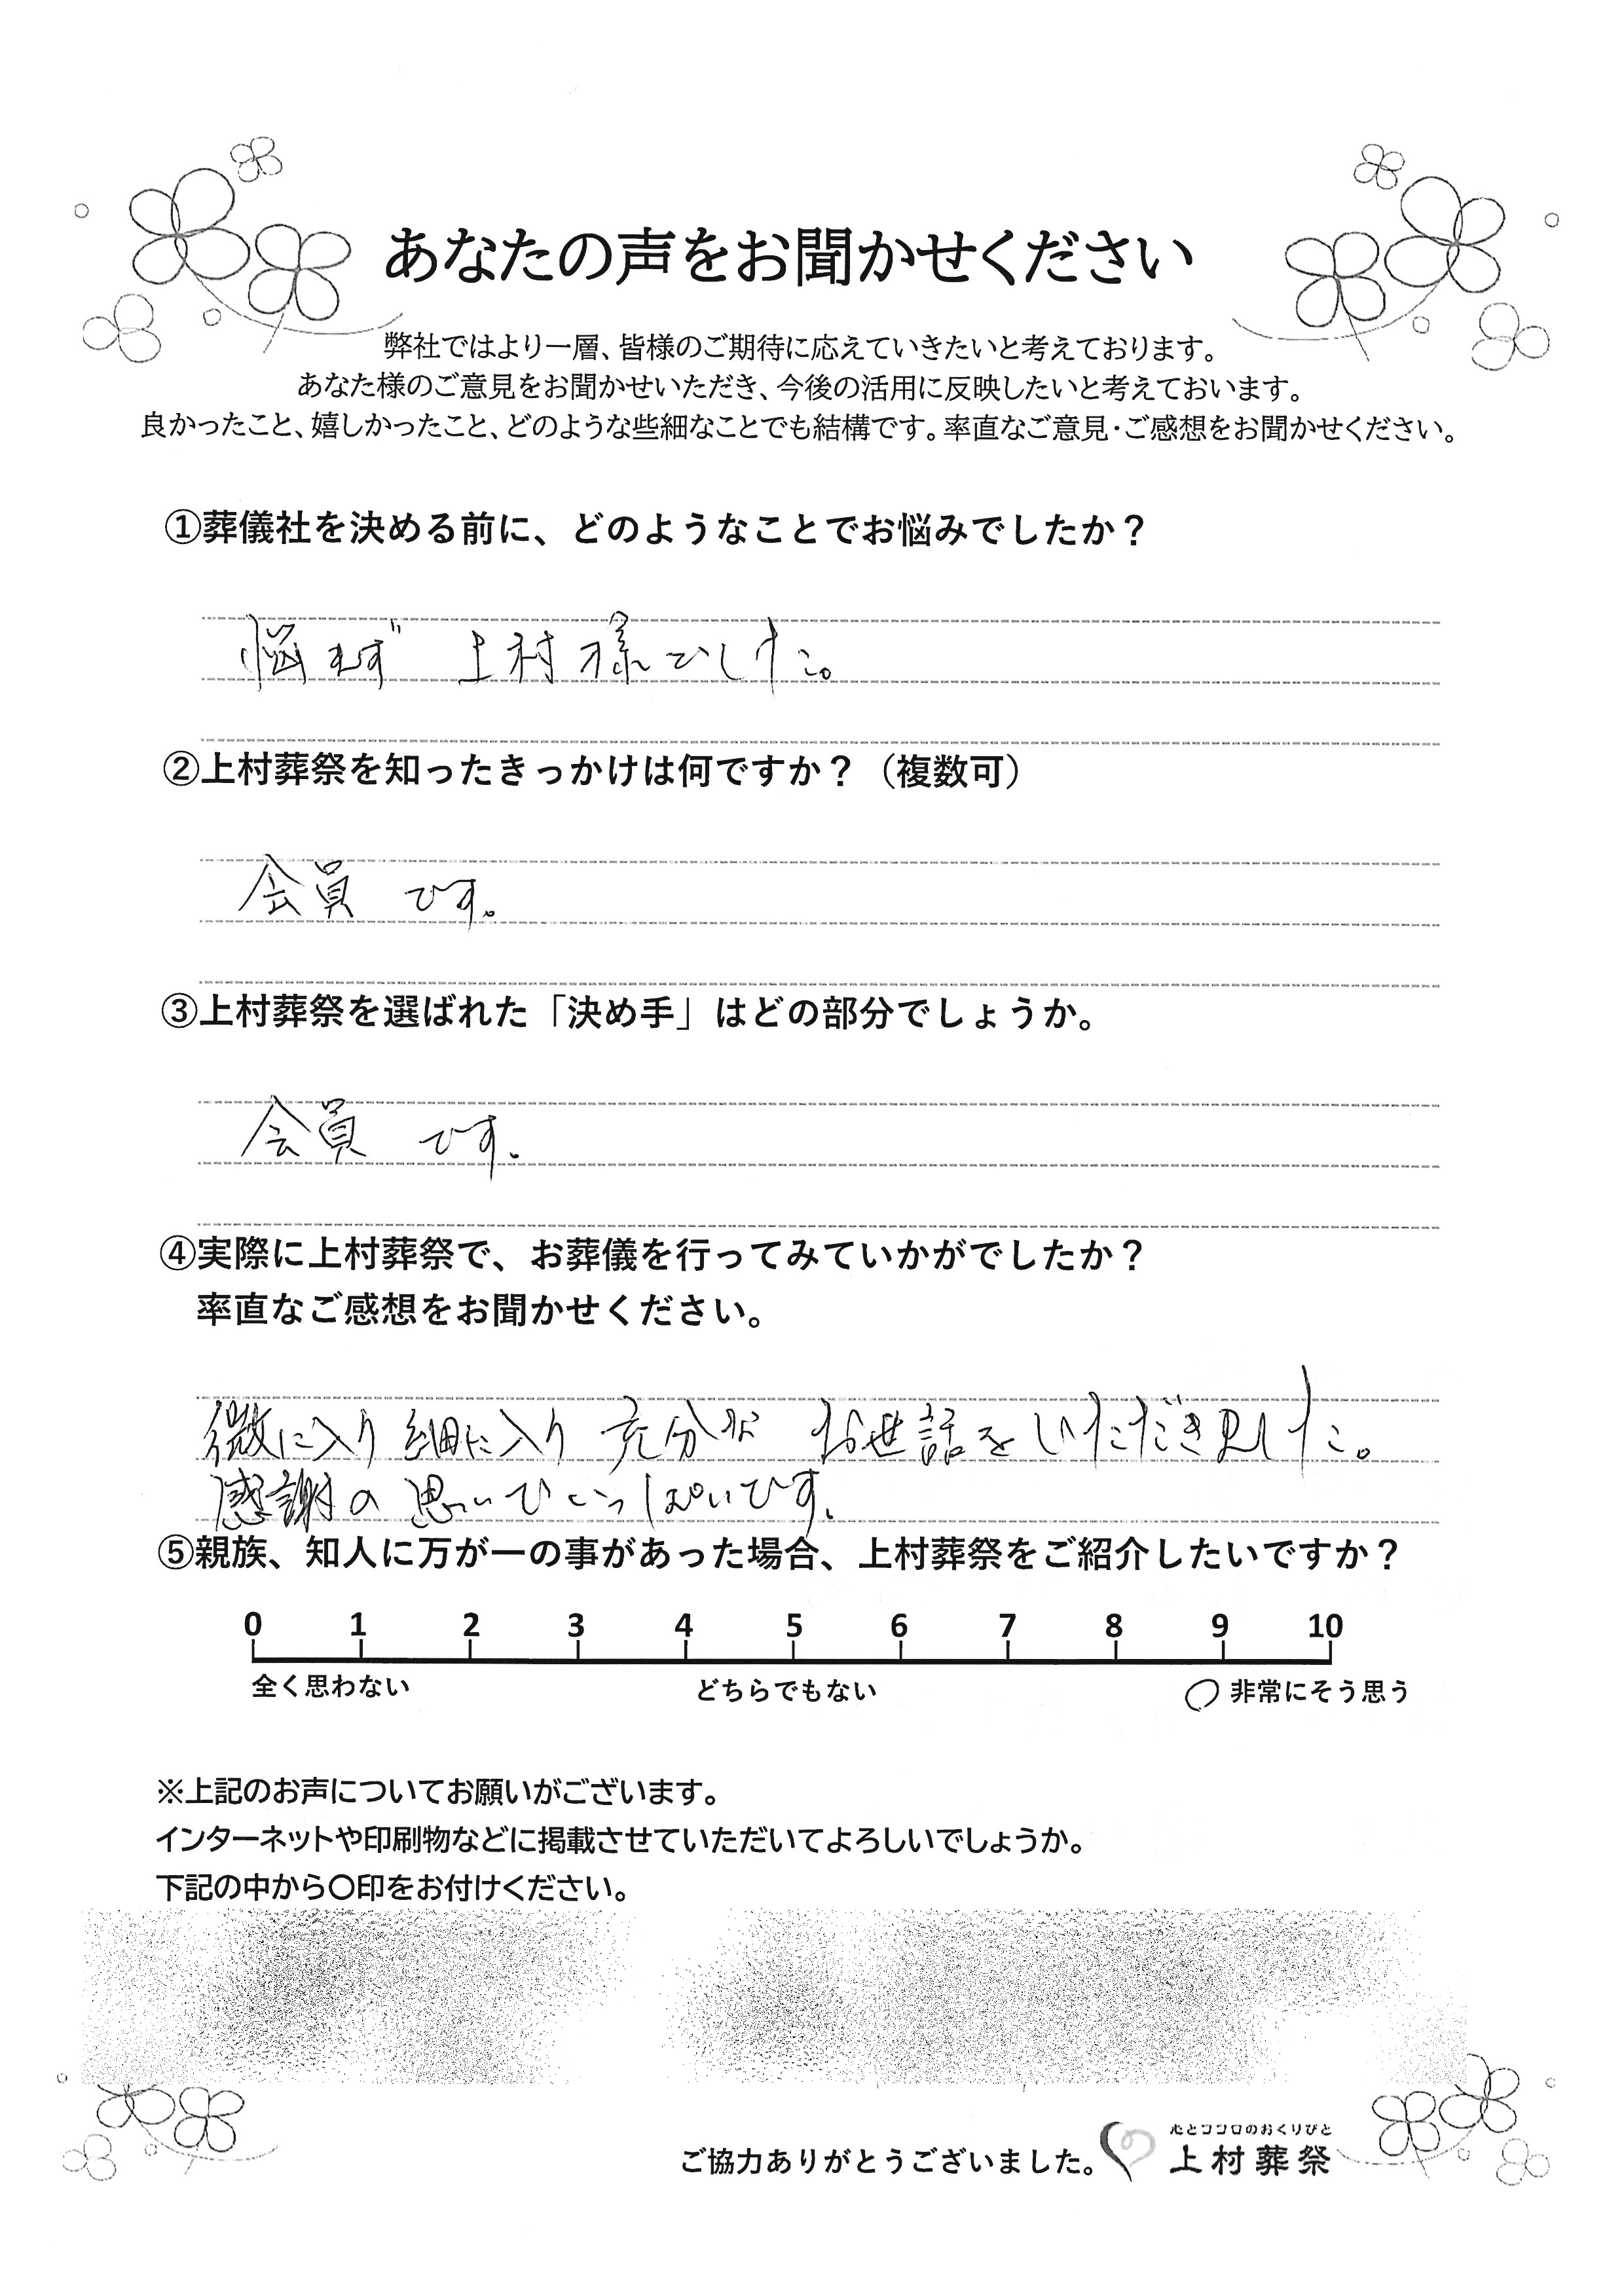 あなたの声をお聞かせください
弊社ではより一層、皆様のご期待に応えていきたいと考えております。
あなた様のご意見をお聞かせいただき、今後の活用に反映したいと考えておいます。
良かったこと、嬉しかったこと、どのような些細なことでも結構です。率直なご意見・ご感想をお聞かせください。
①葬儀社を決める前に、どのようなことでお悩みでしたか？
悩まず 上村様でした。
②上村葬祭を知ったきっかけは何ですか？（複数可）
会員 です。
③上村葬祭を選ばれた「決め手」はどの部分でしょうか。
会員 です。
④実際に上村葬祭で、お葬儀を行ってみていかがでしたか？
率直なご感想をお聞かせください。
微に入り 細に入り 充分な お世話をいただきました。
感謝の 思いでいっぱいです。
⑤親族、知人に万が一の事があった場合、上村葬祭をご紹介したいですか？
0 1 2 3 4 5 6 7 8 9 10
全く思わない どちらでもない 〇 非常にそう思う
※上記のお声についてお願いがございます。
インターネットや印刷物などに掲載させていただいてよろしいでしょうか。
下記の中から〇印をお付けください。
ご協力ありがとうございました。
心とココロのおくりびと
上村葬祭